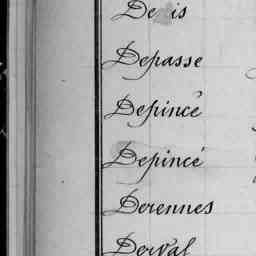 Depasse
Depincé
Depincé
Derennes
Derval